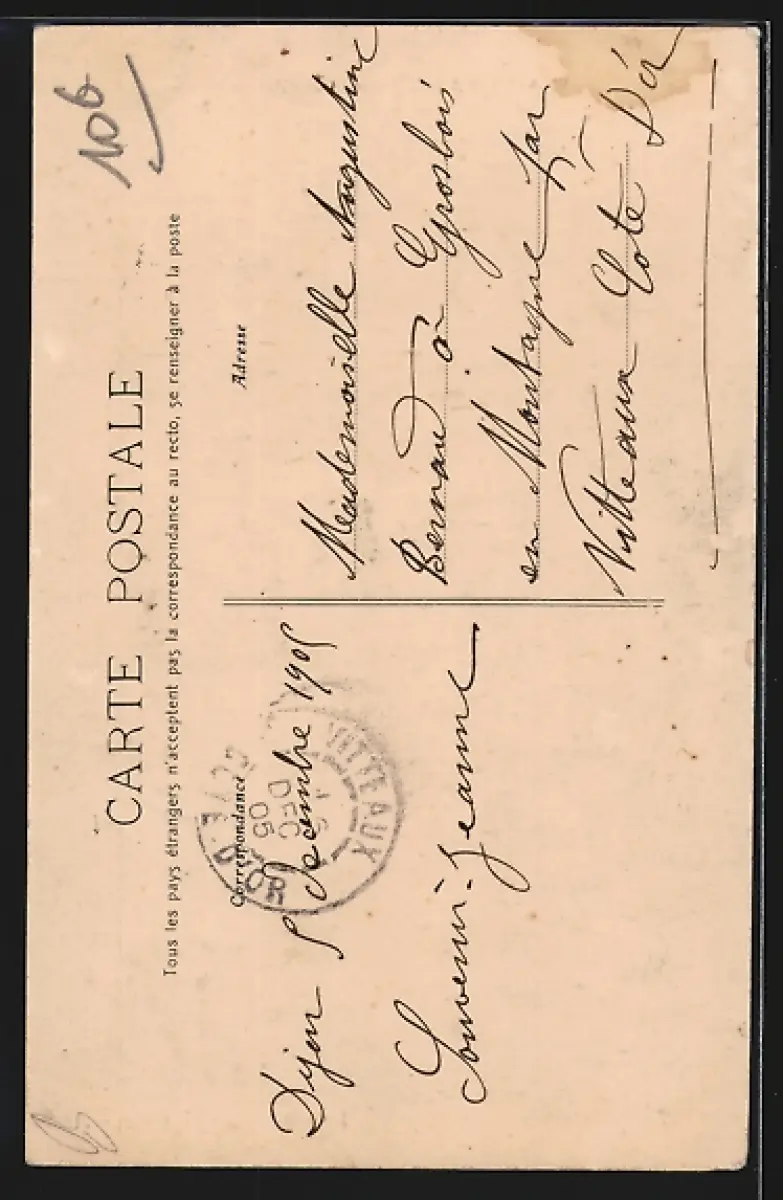 106
CARTE POSTALE
Tous les pays étrangers n'acceptent pas la correspondance au recto, se renseigner à la poste
Correspondance
Adresse
Dijon 5 Décembre 1905
Souvenir. Jeanne
VITTEAUX
DEC
05
D'OR
Mademoiselle Augustine
Bernard à Grosbois
en Montagne par
Vitteaux Cote D'or